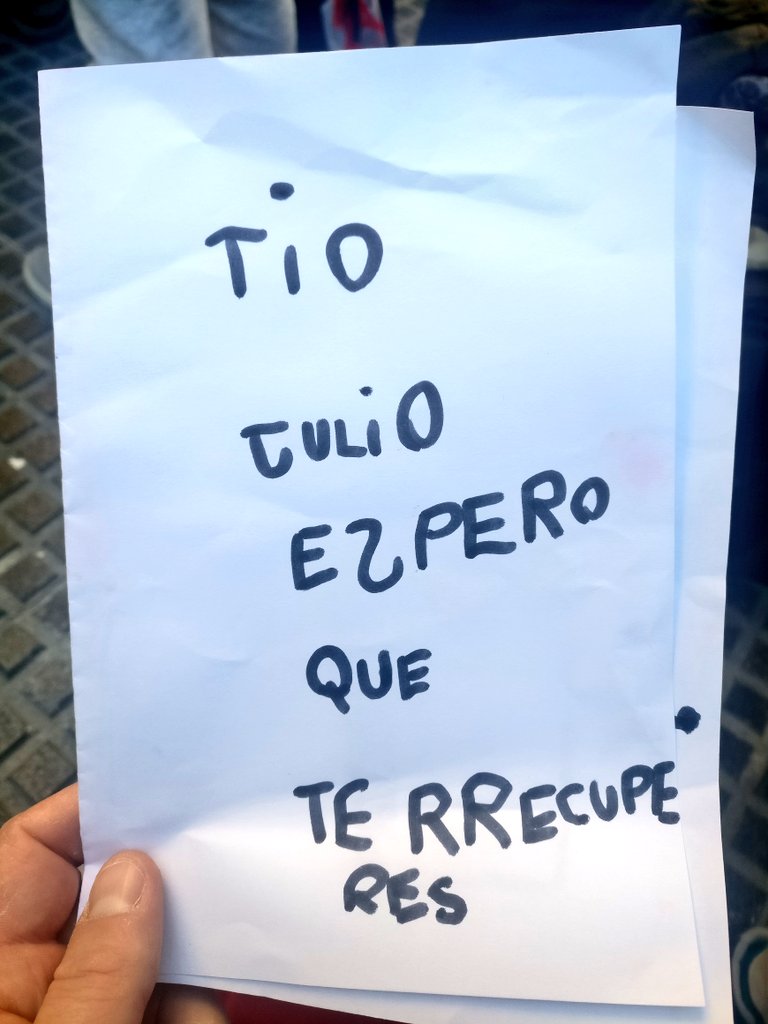 TiO
JULiO
ESPERO
QUE
TE RRECUPE
RES